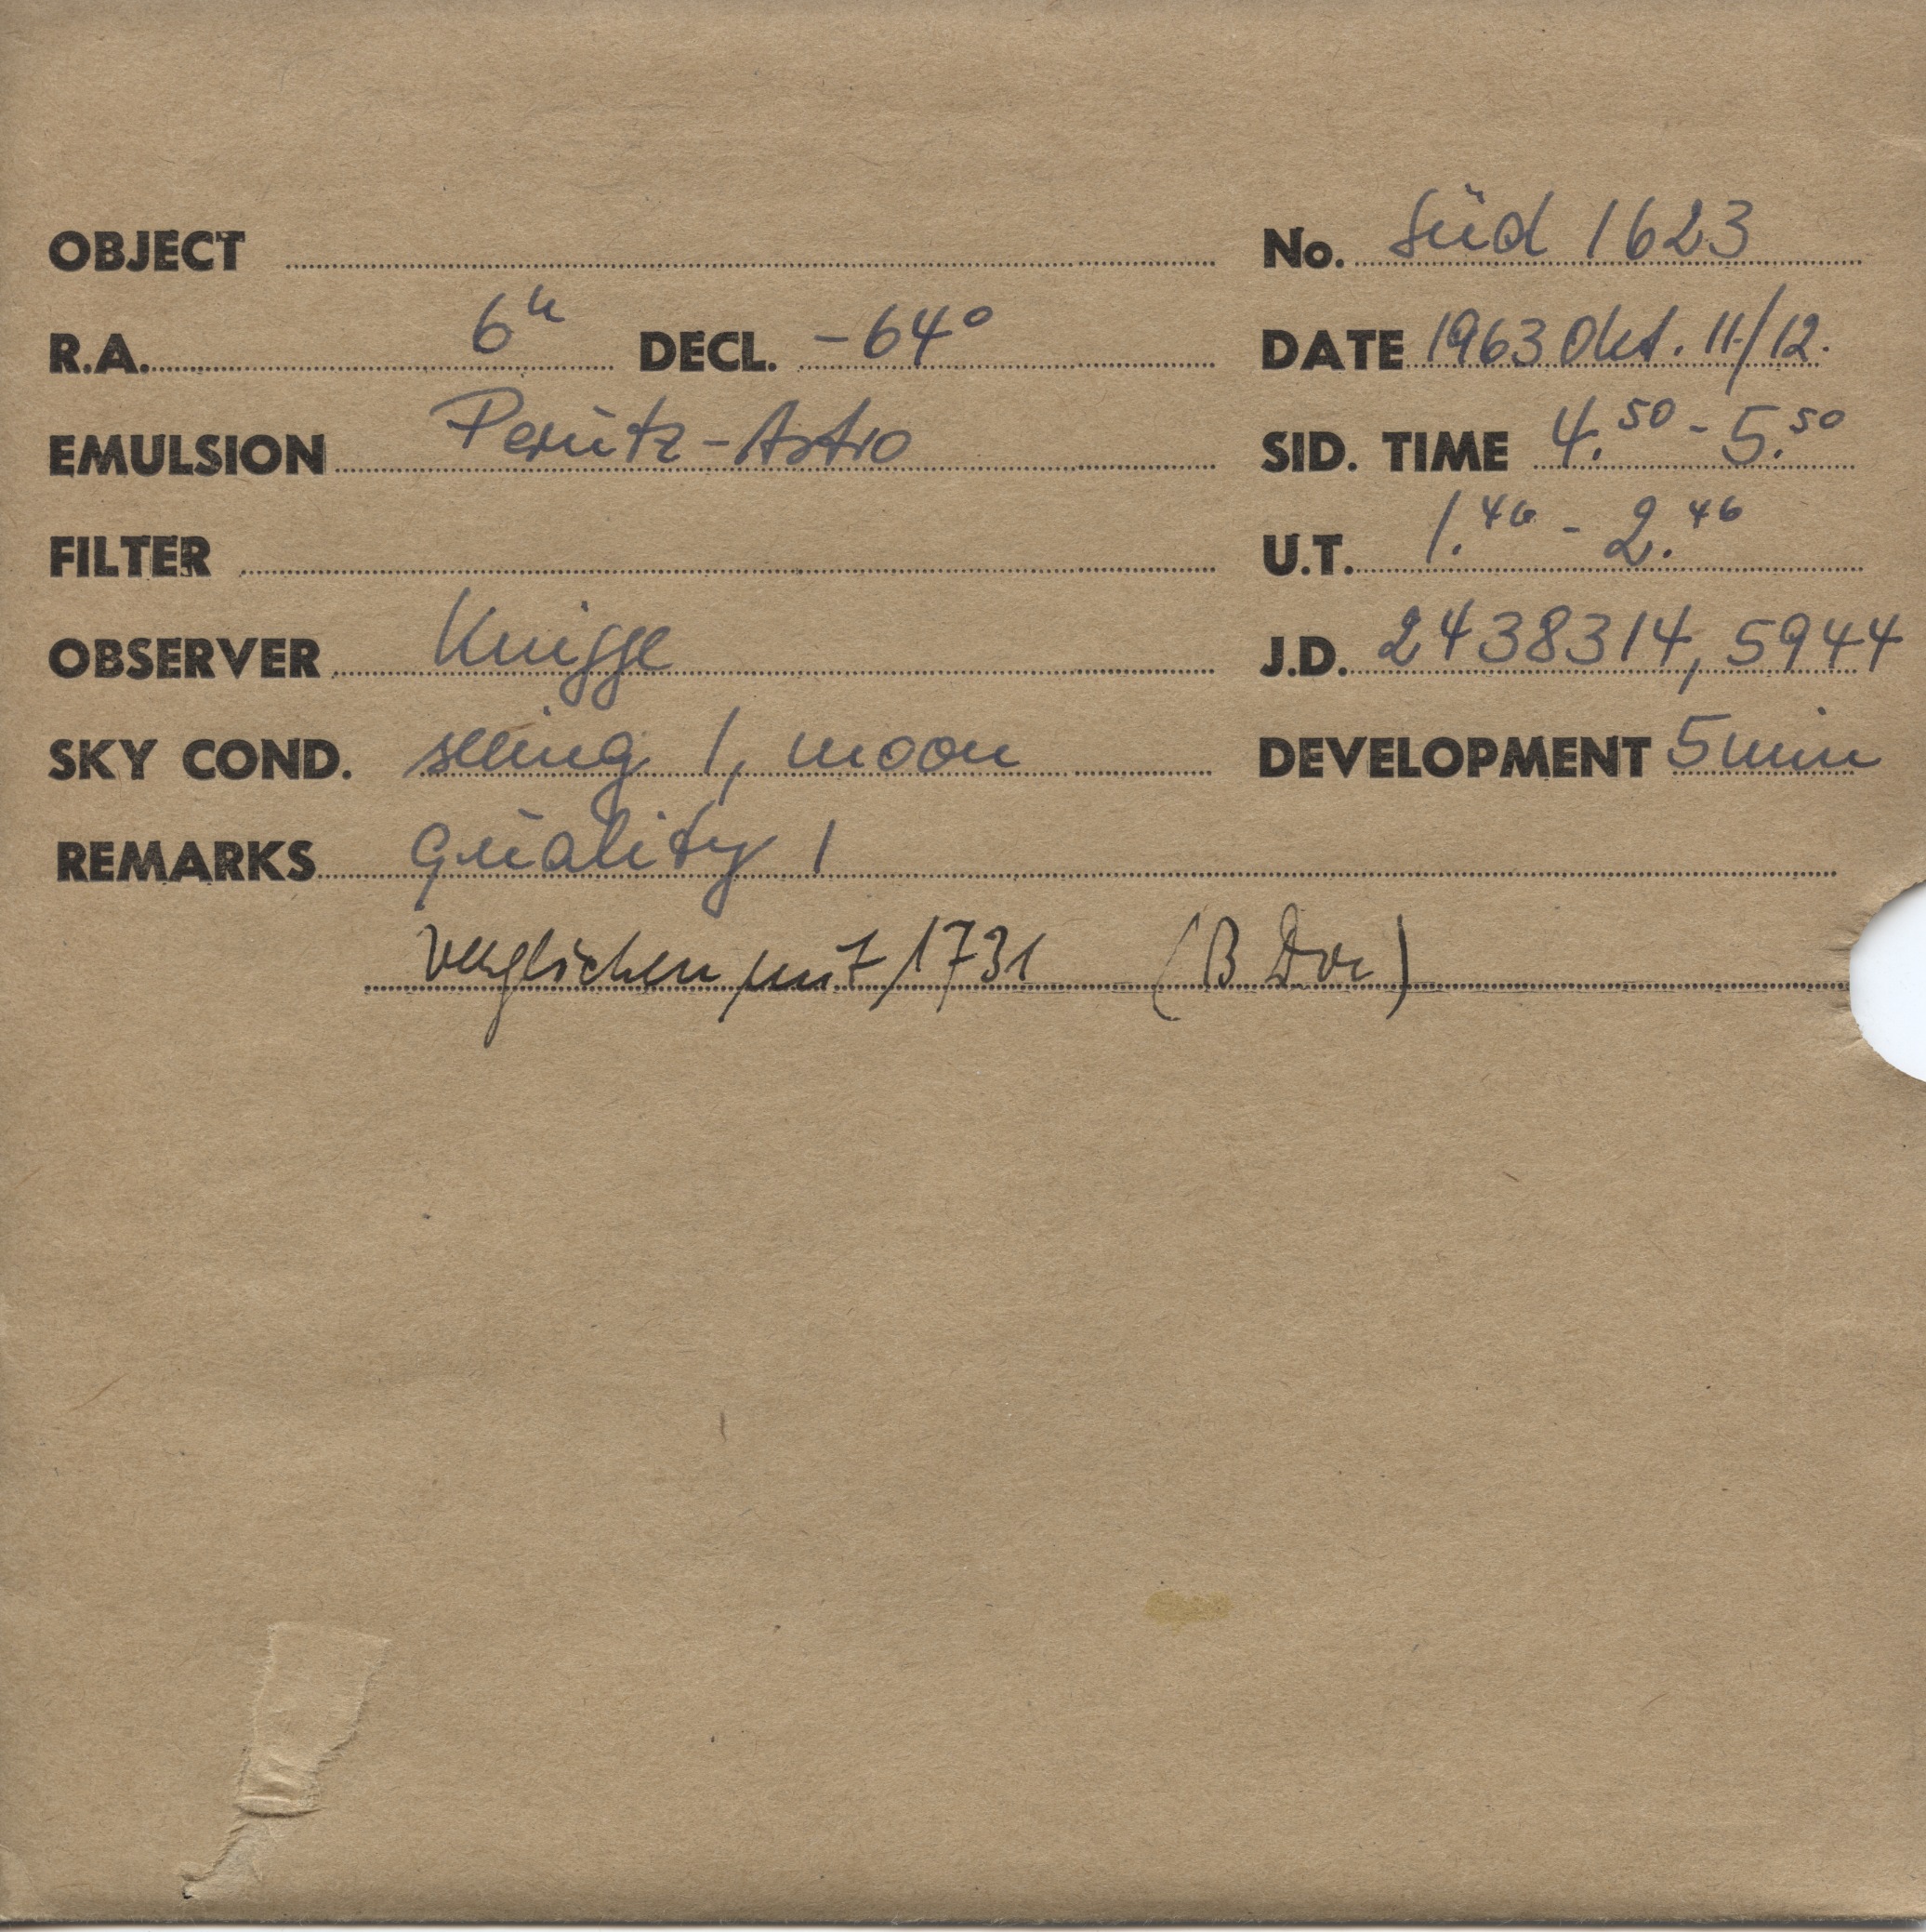 OBJECT No. Süd 1623
R.A. 6h DECL. -64° DATE 1963 Okt. 11./12.
EMULSION Perutz-Astro SID. TIME 4.50 - 5.50
FILTER U.T. 1.46 - 2.46
OBSERVER Knigge J.D. 2438314,5944
SKY COND. seeing 1, moon DEVELOPMENT 5 min
REMARKS quality 1
verglichen mit 1731 (B Dor)